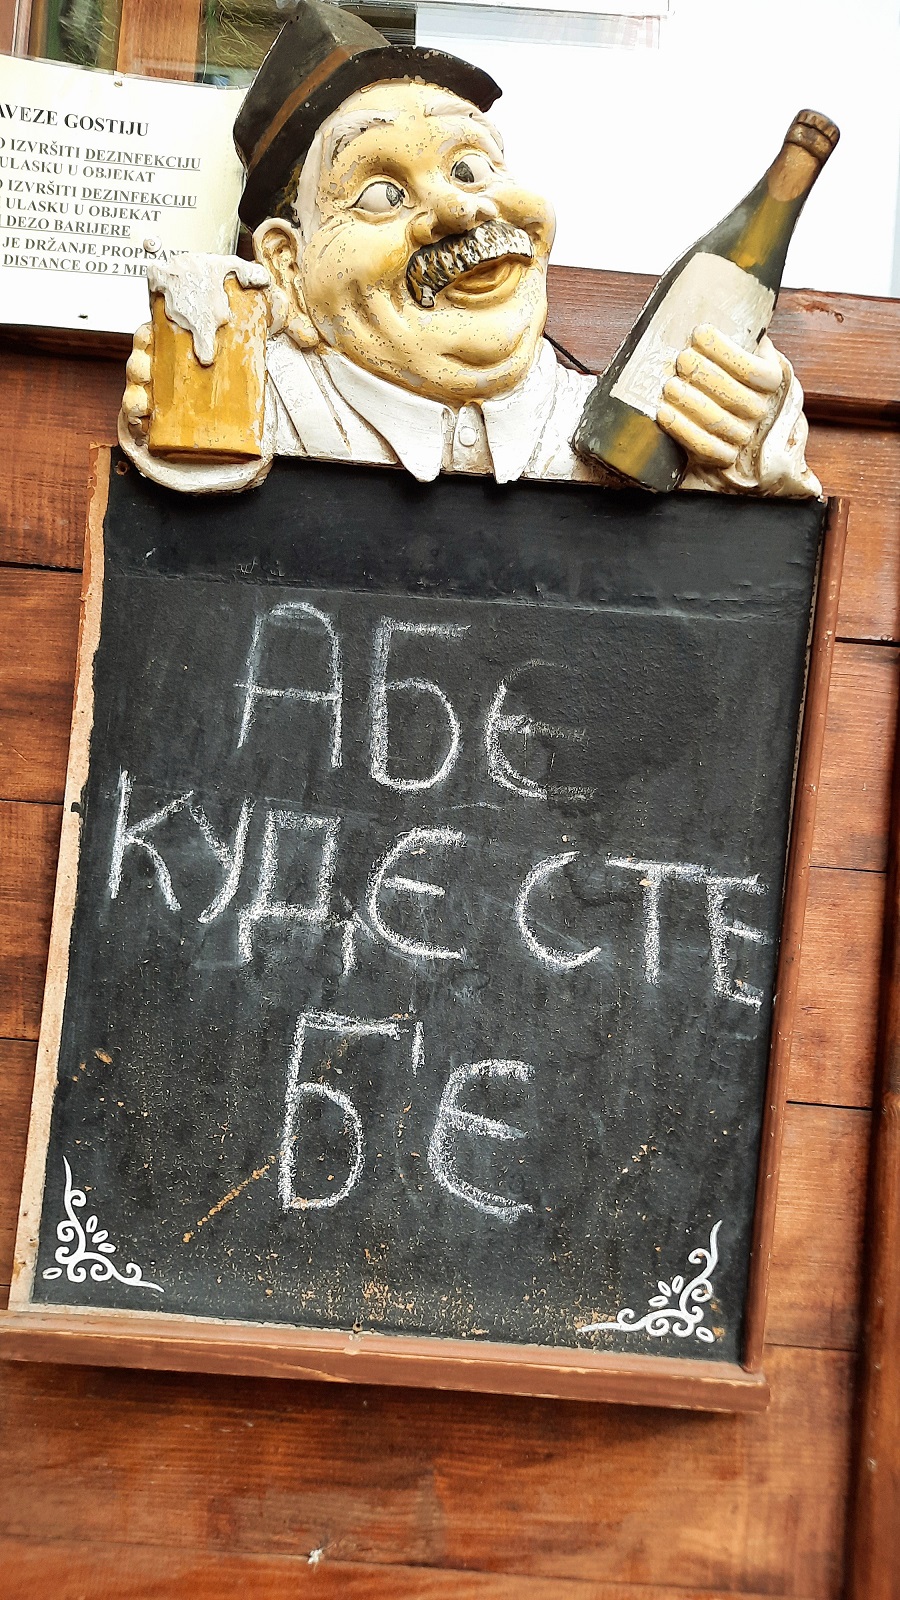 AVEZE GOSTIJU
O IZVRŠITI DEZINFEKCIJU
ULASKU U OBJEKAT
O IZVRŠITI DEZINFEKCIJU
ULASKU U OBJEKAT
DEZO BARIJERE
JE DRŽANJE PROPISANE
DISTANCE OD 2 ME
АБЕ
КУДЕ СТЕ
Б'Е